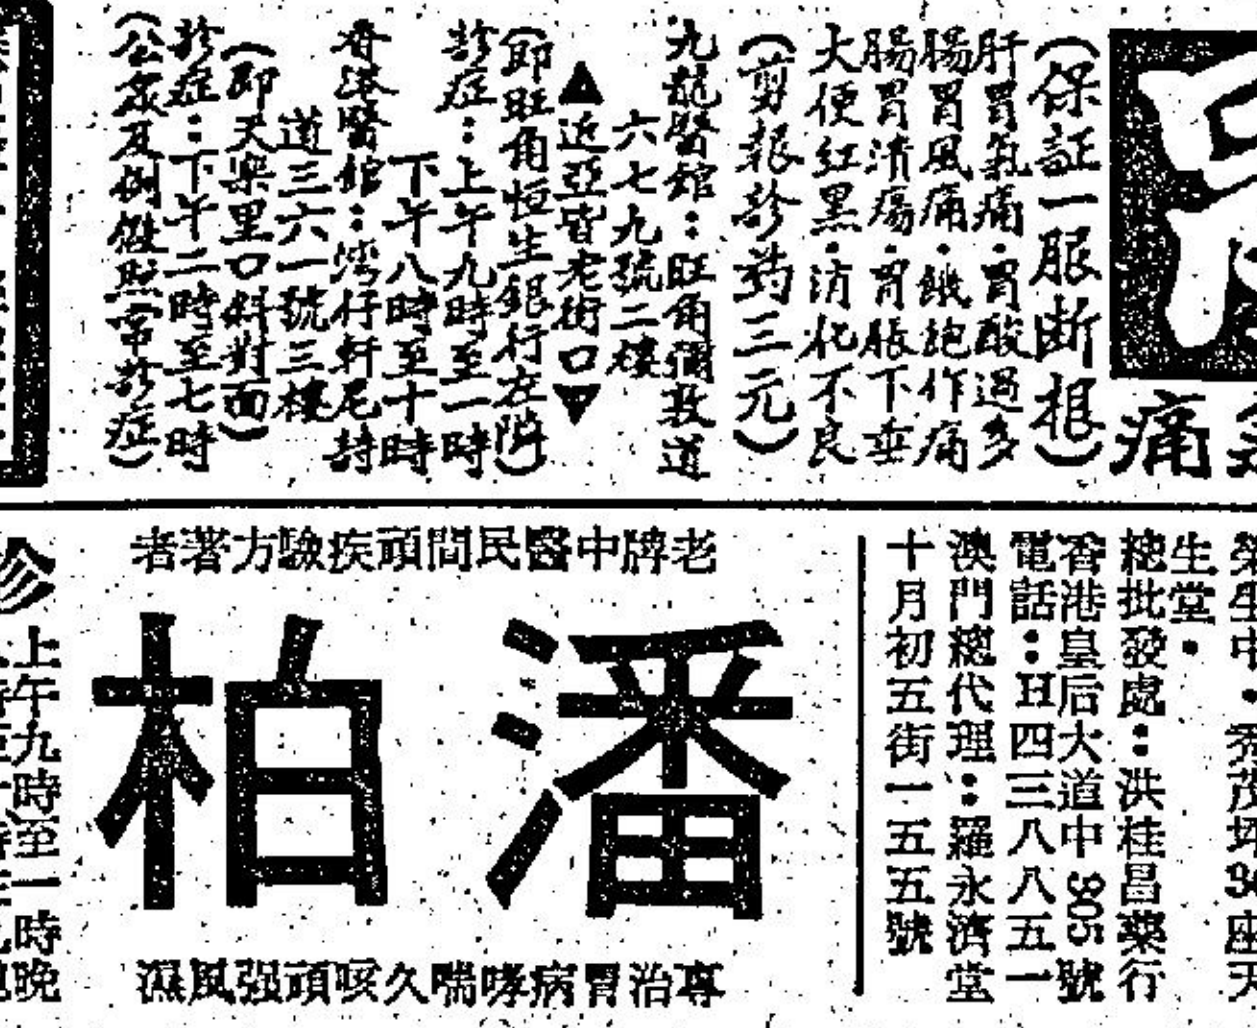 痛
(保証一服断根)
肝胃氣痛·胃酸過多
腸胃風痛·餓飽作痛
腸胃潰瘍·胃脹下垂
大便紅黑·消化不良
(剪報診葯三元)
九龍醫舘：旺角彌敦道
六七九號二樓
▲近亞皆老街口▼
(即旺角恒生銀行左隣)
診症：上午九時至一時
下午八時至十時
香港醫舘：灣仔軒尼詩
道三六一號三樓
(即天樂里口斜對面)
診症：下午二時至七時
(公衆及例假照常診症)
生堂·
總批發處：洪桂昌藥行
香港皇后大道中905號
電話：H四三八八五一
澳門總代理：羅永濟堂
十月初五街一五五號
老牌中醫民間頑疾驗方著者
潘柏
專治胃病哮喘久咳頑强風濕
診
上午九時至一時晚